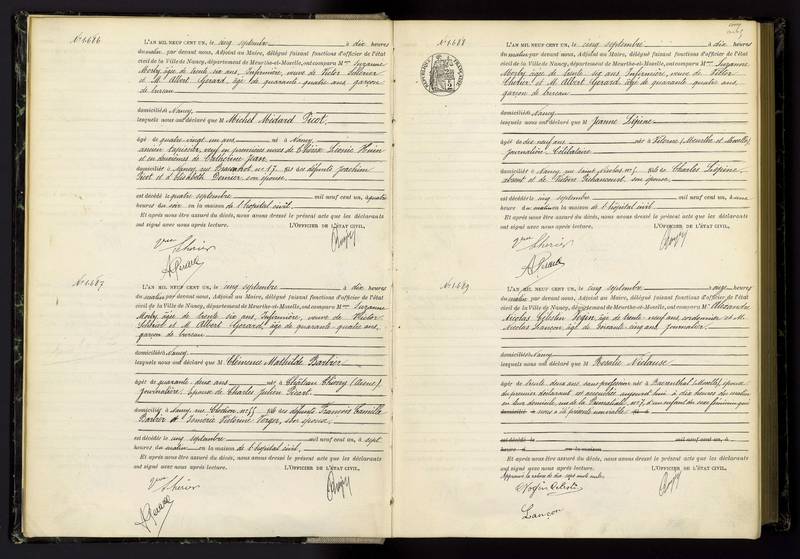 N° 1686
L'AN MIL NEUF CENT UN, le cinq septembre à dix heures
du matin par devant nous, Adjoint au Maire, délégué faisant fonctions d'officier de l'état
civil de la Ville de Nancy, département de Meurthe-et-Moselle, ont comparu Mme Suzanne
Morby âgée de trente six ans, Infirmière, veuve de Victor
et M. Albert Gérard, âgé de quarante-quatre ans, garçon
de bureau
domiciliés à Nancy
lesquels nous ont déclaré que Michel Médard Picot
âgé de quatre-vingt un ans né à Nancy
ancien tapissier, veuf en premières noces de Thérèse Léonie
et en deuxièmes de Catherine Jean
domicilié à Nancy, rue n° 17, fils des défunts Joachim
Picot et d'Elisabeth son épouse
est décédé le quatre septembre mil neuf cent un, à quatre
heures du soir en la maison de l'hôpital civil.
Et après nous être assuré du décès, nous avons dressé le présent acte que les déclarants
ont signé avec nous après lecture. L'OFFICIER DE L'ÉTAT CIVIL,
Vve
A Gérard
N° 1687
L'AN MIL NEUF CENT UN, le cinq septembre à dix heures
du matin par devant nous, Adjoint au Maire, délégué faisant fonctions d'officier de l'état
civil de la Ville de Nancy, département de Meurthe-et-Moselle, ont comparu Mme Suzanne
Morby, âgée de trente six ans, Infirmière, veuve de Victor
et M. Albert Gérard, âgé de quarante-quatre ans,
garçon de bureau
domiciliés à Nancy
lesquels nous ont déclaré que Clémence Mathilde Barbier
âgée de quarante-deux ans née à Château Thierry (Aisne)
journalière, épouse de Charles Julien Picart
domiciliée à Nancy, rue n° 55 fille des défunts François Camille
Barbier et Victorine son épouse.
est décédée le cinq septembre mil neuf cent un, à sept
heures du matin en la maison de l'hôpital civil.
Et après nous être assuré du décès, nous avons dressé le présent acte que les déclarants
ont signé avec nous après lecture. L'OFFICIER DE L'ÉTAT CIVIL,
Vve
A Gérard
N° 1688
RÉPUBLIQUE FRANÇAISE
L'AN MIL NEUF CENT UN, le cinq septembre à dix heures
du matin par devant nous, Adjoint au Maire, délégué faisant fonctions d'officier de l'état
civil de la Ville de Nancy, département de Meurthe-et-Moselle, ont comparu Mme Suzanne
Morby âgée de trente six ans Infirmière, veuve de Victor
et M. Albert Gérard, âgé de quarante-quatre ans,
garçon de bureau
domiciliés à Nancy
lesquels nous ont déclaré que Jeanne Lépine
âgée de dix neuf ans née à (Meurthe et Moselle)
journalière, Célibataire
domiciliée à Nancy, rue Saint Nicolas n° fille de Charles Lépine,
absent et de Victoire son épouse,
est décédée le cinq septembre mil neuf cent un, à une
heure du matin en la maison de l'hôpital civil
Et après nous être assuré du décès, nous avons dressé le présent acte que les déclarants
ont signé avec nous après lecture. L'OFFICIER DE L'ÉTAT CIVIL,
Vve
A Gérard
N° 1689
L'AN MIL NEUF CENT UN, le cinq septembre à onze heures
du matin par devant nous, Adjoint au Maire, délégué faisant fonctions d'officier de l'état
civil de la Ville de Nancy, département de Meurthe-et-Moselle, ont comparu M. Alexandre
Nicolas Célestin Vogin, âgé de trente-neuf ans, cordonnier et M.
Nicolas Lançon, âgé de soixante-cinq ans journalier
domiciliés à Nancy
lesquels nous ont déclaré que Rosalie Niclause
âgée de trente-deux ans sans profession née à Baerenthal (Moselle), épouse
du premier déclarant est accouchée aujourd'hui à dix heures du matin
en leur domicile, rue de la Primatiale, n° 7, d'un enfant du sexe féminin qui
domicilié à nous a été présenté sans vie.
est décédé le mil neuf cent un, à
heures d en la maison
Et après nous être assuré du décès, nous avons dressé le présent acte que les déclarants
ont signé avec nous après lecture. L'OFFICIER DE L'ÉTAT CIVIL,
Vogin Célestin
Lançon